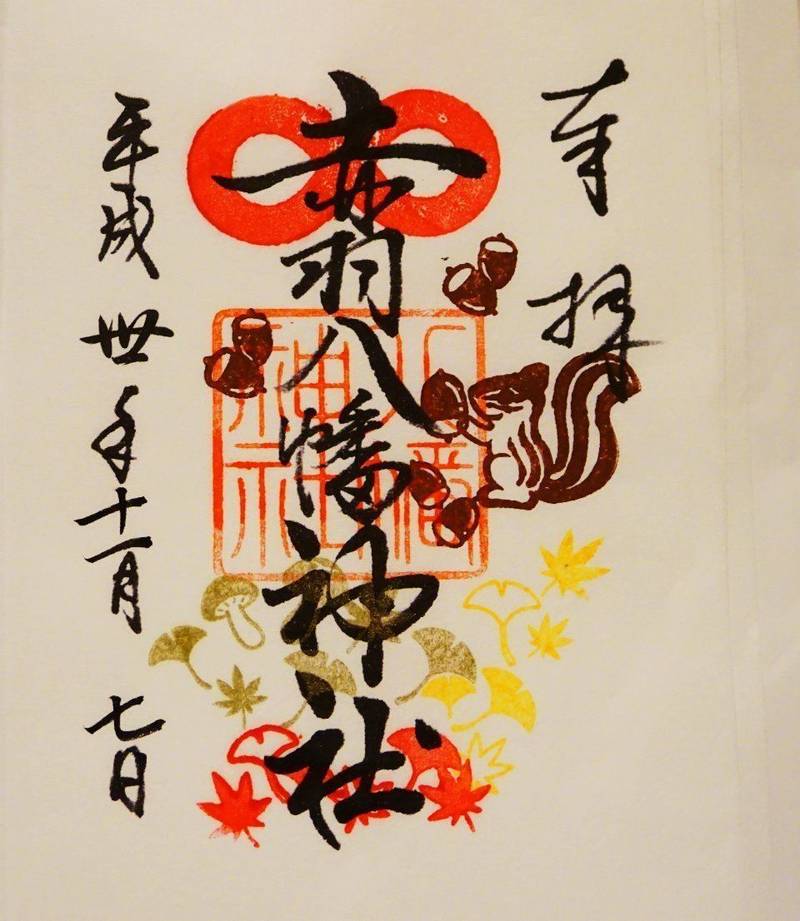 奉拝
赤羽八幡神社
八幡神社
平成卅年十一月七日